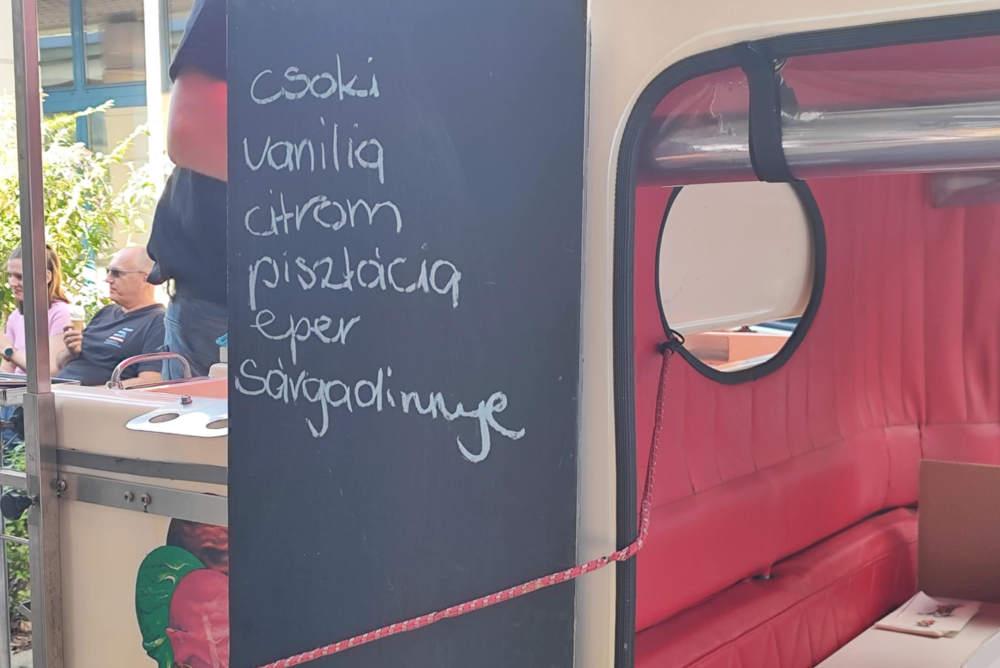 csoki
vanilia
citrom
pisztácia
eper
sárgadinnye